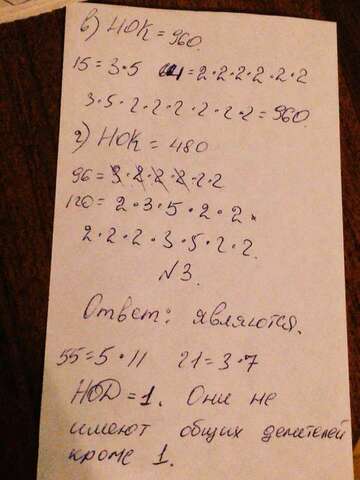 в) НОК = 960.
15 = 3·5 64 = 2·2·2·2·2·2
3·5·2·2·2·2·2·2 = 960.
г) НОК = 480
96 = 3·2·2·2·2·2
120 = 2·3·5·2·2.
2·2·2·3·5·2·2.
№3.
Ответ: являются.
55 = 5·11 21 = 3·7
НОД = 1. Они не
имеют общих делителей
кроме 1.